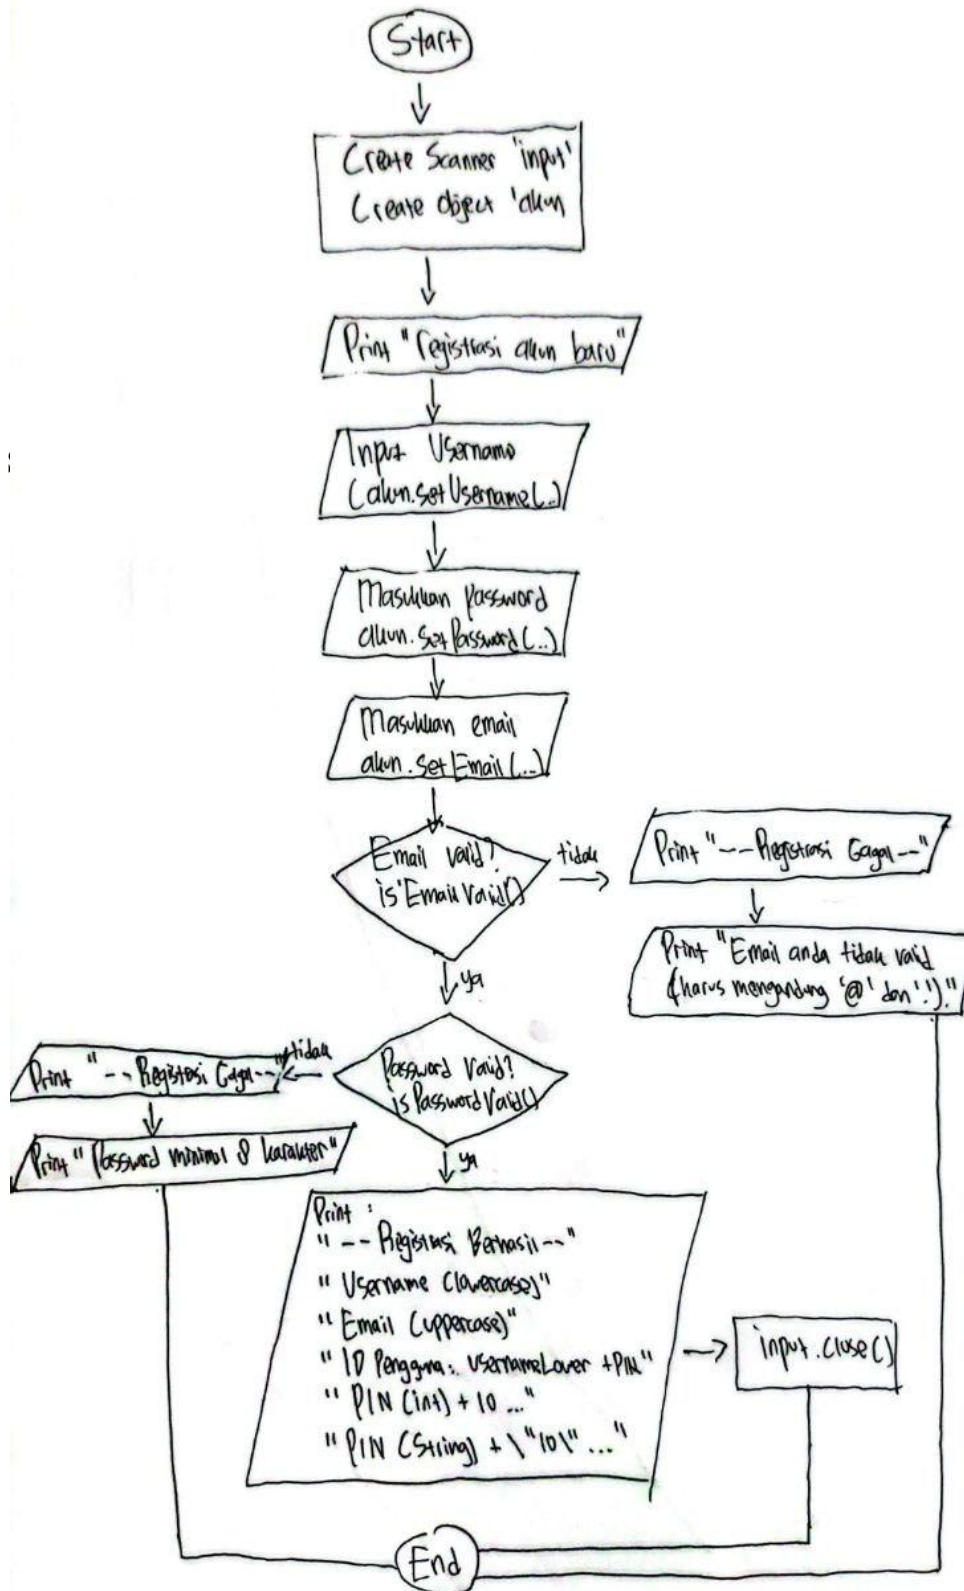 Start
Create Scanner 'input'
Create object 'akun
Print "registrasi akun baru"
Input Username
(akun.setUsername(..)
Masukkan password
akun.setPassword(..)
Masukkan email
akun.setEmail(...)
Email valid?
is'EmailValid'()
tidak
Print "--Registrasi Gagal--"
Print "Email anda tidak valid
(harus mengandung '@' dan '.')."
ya
Password Valid?
isPasswordValid()
tidak
Print "--Registrasi Gagal--"
Print "Password minimal 8 karakter"
ya
Print :
"--Registrasi Berhasil--"
"Username (lowercase)"
"Email (uppercase)"
"ID Pengguna: usernameLower +PIN"
"PIN (int) + 10 ..."
"PIN (String) + \"10\" ..."
input.close()
End